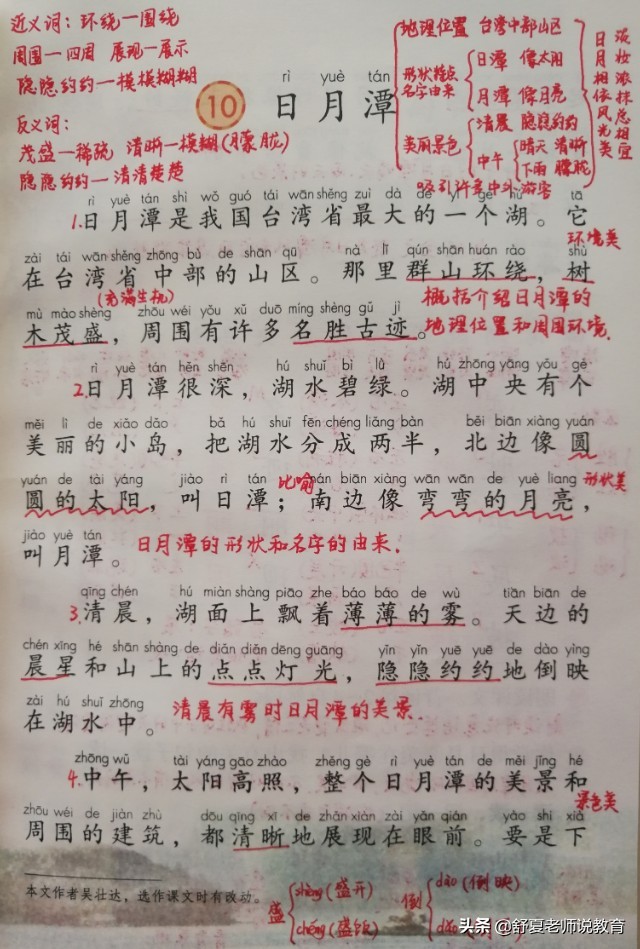 近义词：环绕一围绕
周围一四周 展现一展示
隐隐约约一模模糊糊
反义词：
茂盛一稀疏 清晰一模糊(朦胧)
隐隐约约一清清楚楚
地理位置 台湾中部山区
形状特点
名字由来
日潭 像太阳
月潭 像月亮
美丽景色
清晨 隐隐约约
中午
晴天 清晰
下雨 朦胧
吸引许多中外游客
日月相依风光美
淡妆浓抹总相宜
rì yuè tán
10 日月潭
rì yuè tán shì wǒ guó tái wān shěng zuì dà de yí gè hú tā
1.日月潭是我国台湾省最大的一个湖。它
环境美
zài tái wān shěng zhōng bù de shān qū nà lǐ qún shān huán rào shù
在台湾省中部的山区。那里群山环绕，树
(充满生机)
mù mào shèng zhōu wéi yǒu xǔ duō míng shèng gǔ jì
木茂盛，周围有许多名胜古迹。
概括介绍日月潭的
地理位置和周围环境.
rì yuè tán hěn shēn hú shuǐ bì lǜ hú zhōng yāng yǒu gè
2.日月潭很深，湖水碧绿。湖中央有个
měi lì de xiǎo dǎo bǎ hú shuǐ fēn chéng liǎng bàn běi biān xiàng yuán
美丽的小岛，把湖水分成两半，北边像圆
yuán de tài yáng jiào rì tán nán biān xiàng wān wān de yuè liang
比喻
形状美
圆的太阳，叫日潭；南边像弯弯的月亮，
jiào yuè tán
叫月潭。
日月潭的形状和名字的由来.
qīng chén hú miàn shàng piāo zhe báo báo de wù tiān biān de
3.清晨，湖面上飘着薄薄的雾。天边的
chén xīng hé shān shàng de diǎn diǎn dēng guāng yǐn yǐn yuē yuē de dào yìng
晨星和山上的点点灯光，隐隐约约地倒映
zài hú shuǐ zhōng
在湖水中。
清晨有雾时日月潭的美景.
zhōng wǔ tài yáng gāo zhào zhěng gè rì yuè tán de měi jǐng hé
4.中午，太阳高照，整个日月潭的美景和
景色美
zhōu wéi de jiàn zhù dōu qīng xī de zhǎn xiàn zài yǎn qián yào shi xià
周围的建筑，都清晰地展现在眼前。要是下
本文作者吴壮达，选作课文时有改动。
盛
shèng(盛开)
chéng(盛饭)
倒
dào(倒映)
头条 @舒夏老师说教育